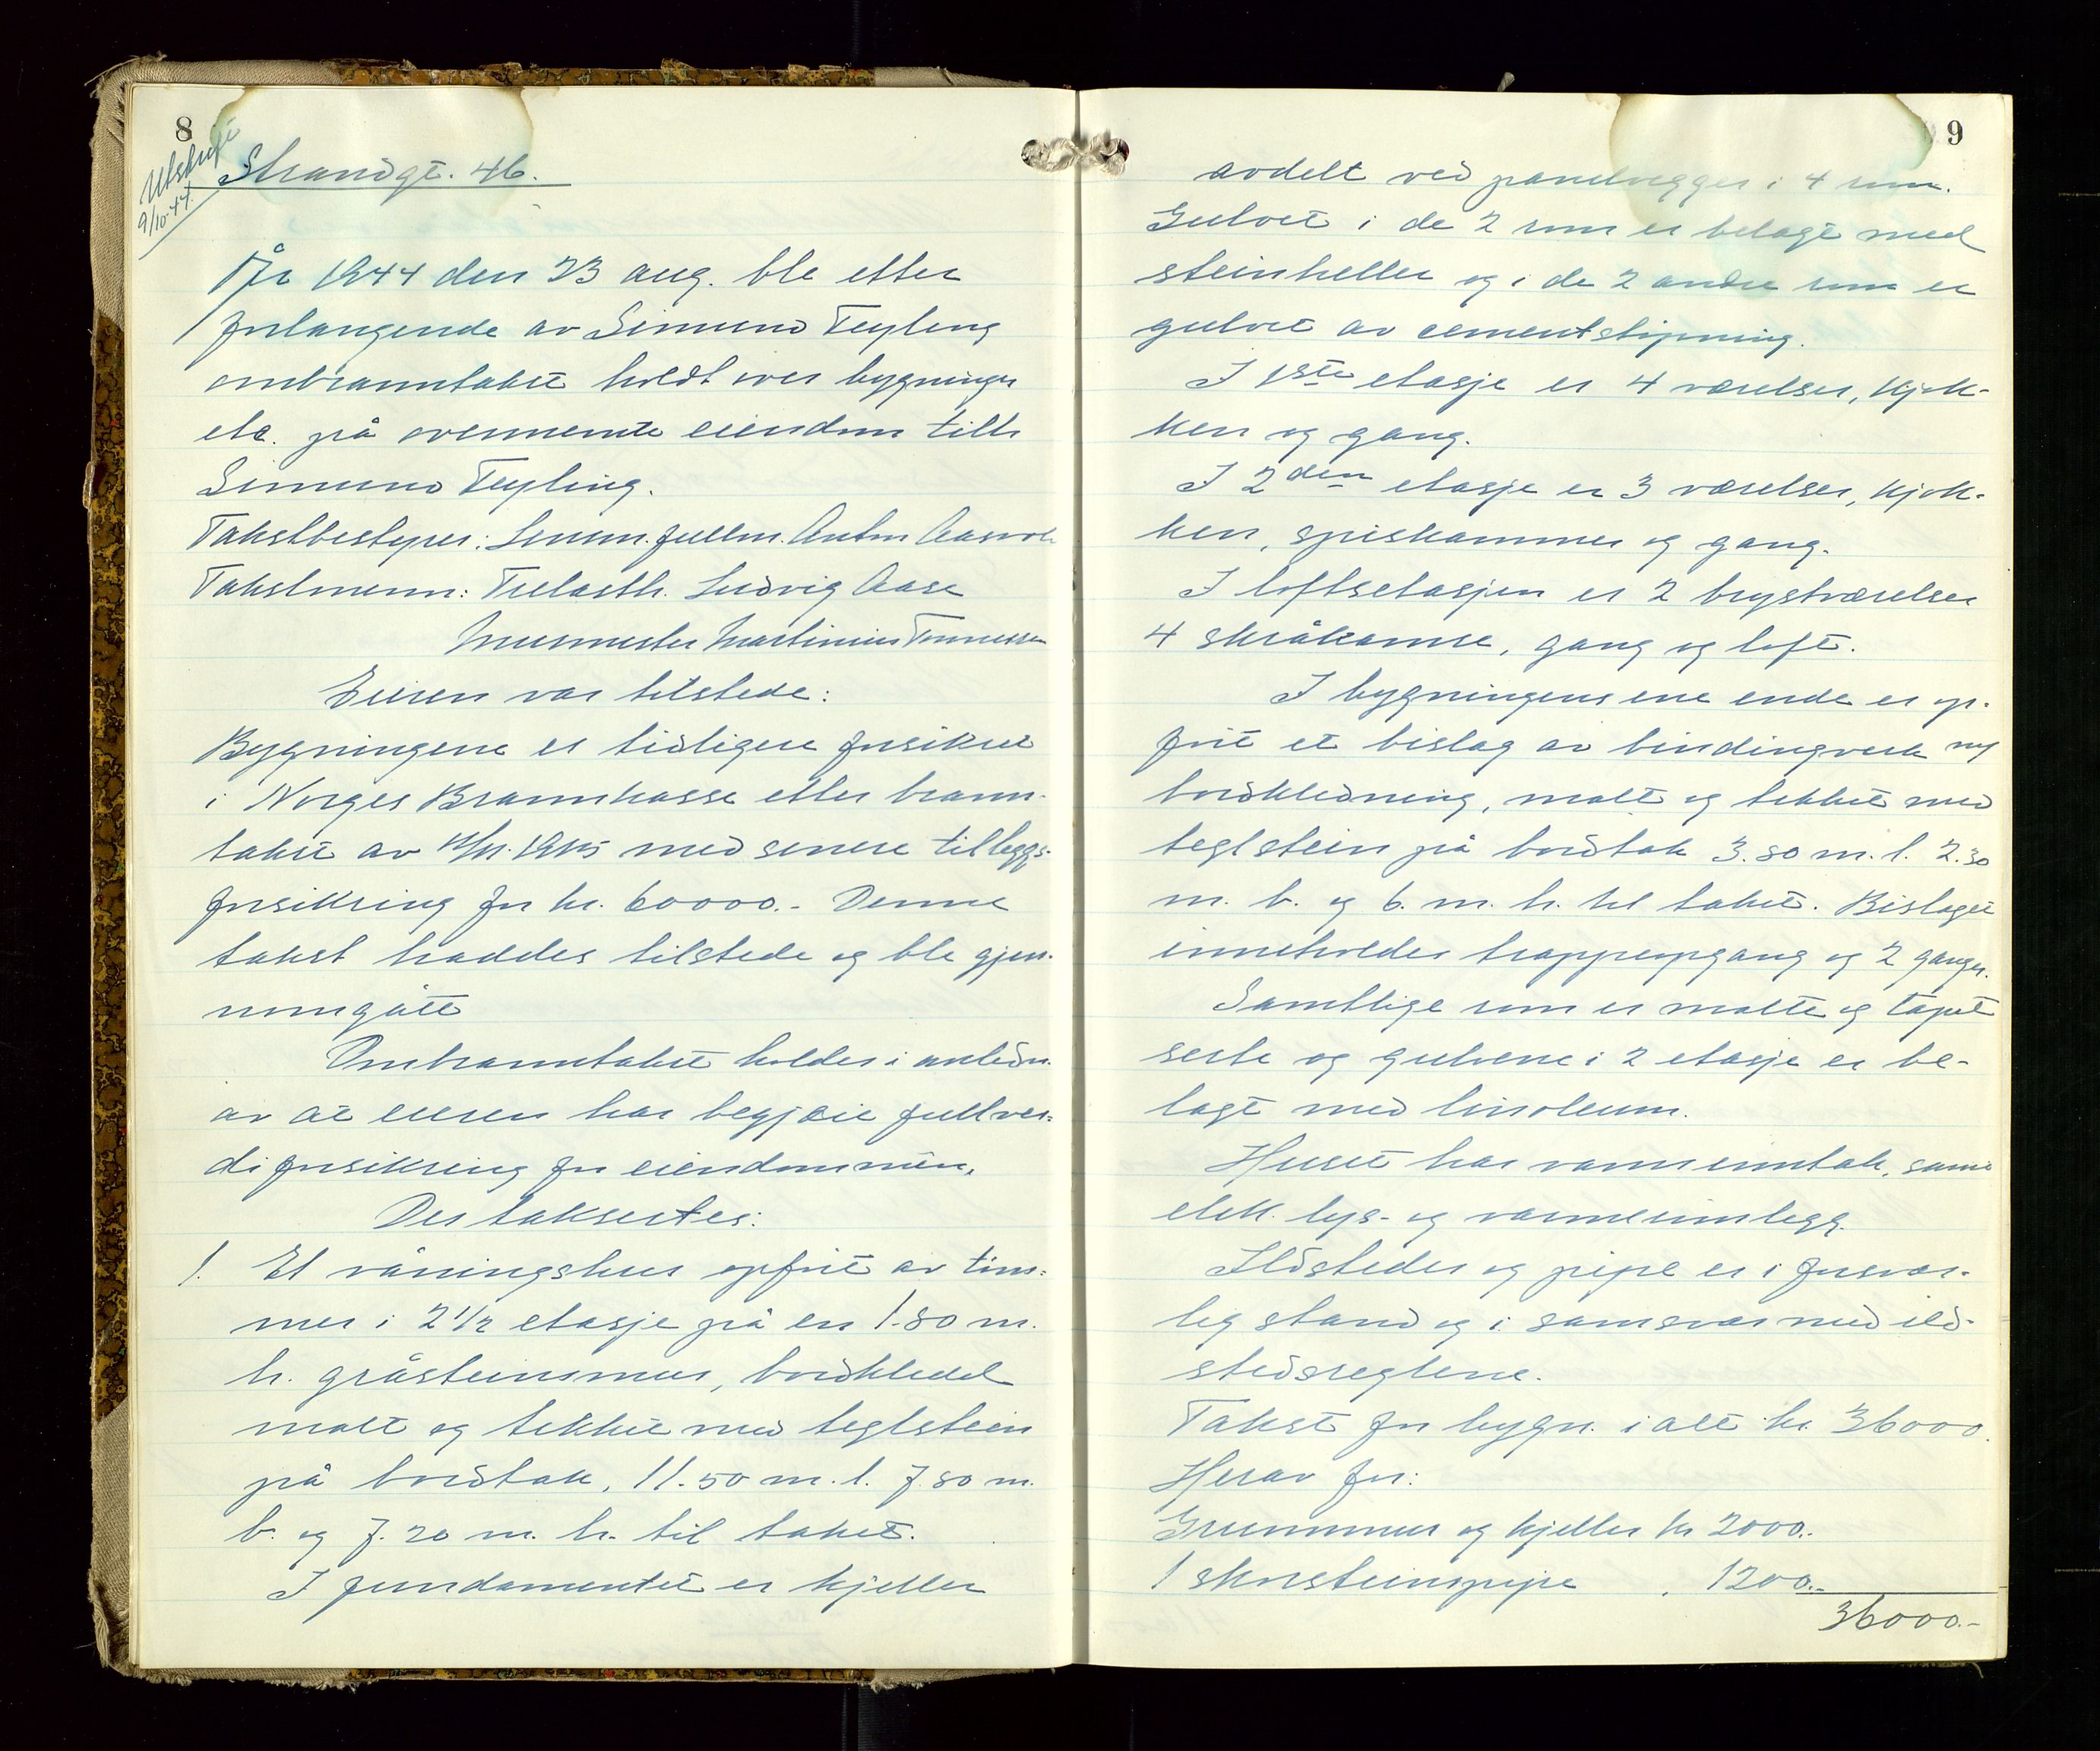 8
Utskrift
9/10-44.
Strandgt. 46.
År 1944 den 23 aug. ble etter
forlangende av Simund Feyling
ombranntakst holdt over bygninger
etc. på ovennevnte eiendom tilh
Simund Feyling.
Takstbestyrer: Lensm. fullm. Anton
Takstmenn: Trelasth. Ludvig Aase
Murmester Martinius Tønnessen
Eieren var tilstede:
Bygningene er tidligere forsikret
i Norges Brannkasse etter brann-
takst av med senere tilleggs-
forsikring for kr. 60000.- Denne
takst haddes tilstede og ble gjen-
nomgått
Ombranntakst holdes i anledn.
av at eieren har begjært fullver-
diforsikring for eiendommen.
Der taksertes:
1. Et våningshus opført av tøm-
mer i 2 1/2 etasje på en 1.80 m.
h. gråsteinsmur, bordkledd
malt og tekket med teglstein
på bordtak, 11.50 m. l. 7.80 m.
b. og 7.20 m. h. til taket.
I fundamentet er kjeller
9
avdelt ved panelvegger i 4 rom.
Gulvet i de 2 rom er belagt med
steinheller og i de 2 andre rom er
gulvet av cementstøpning.
I 1ste etasje er 4 værelser, kjøk-
ken og gang.
I 2den etasje er 3 værelser, kjøk-
ken, spiskammer og gang.
I loftsetasjen er 2 brystværelser
4 skråkamre, gang og loft.
I bygningens ene ende er op-
ført et bislag av bindingverk og
bordkledning, malt og tekket med
teglstein på bordtak 3.80 m. l. 2.30
m. b. og 6. m. h. til taket. Bislaget
inneholder trappeopgang og 2 ganger.
Samtlige rom er malte og tapet
serte og gulvene i 2 etasje er be-
lagt med linoleum.
Huset har vanninntak, samt
elek. lys- og varmeinnlegg.
Ildsteder og pipe er i forsvar-
lig stand og i samsvar med ild-
stedsreglene.
Takst for bygn. i alt kr. 36000.
Herav for:
Grunnmur og kjeller kr 2000.-
1 skorsteinspipe " 1200.-
36000.-